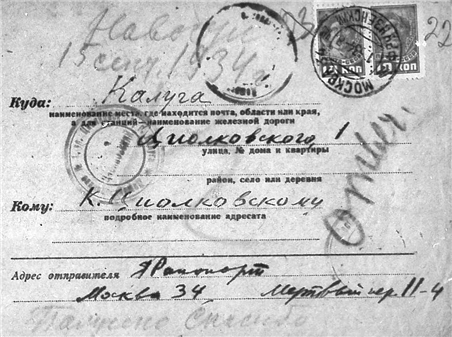 15 сент 1934 г
22
КОП КОП
МОСКВА
Куда: Калуга
наименование места, где находится почта, области или края,
а для станций—наименование железной дороги
Циолковского, 1
улица, № дома и квартиры
район, село или деревня
Кому: К. Циолковскому
подробное наименование адресата
Ответ.
Адрес отправителя Я Рапопорт
Москва 34, Мертвый пер. 11-4